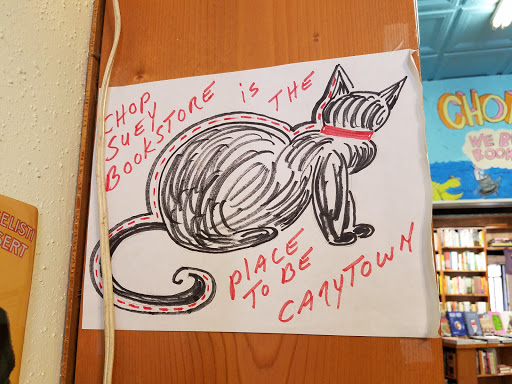 CHOP
SUEY
BOOKSTORE is THE
PlACE
TO BE
CARYTOWN
ELIST!
SERT
CHOP
WE B
BOOK